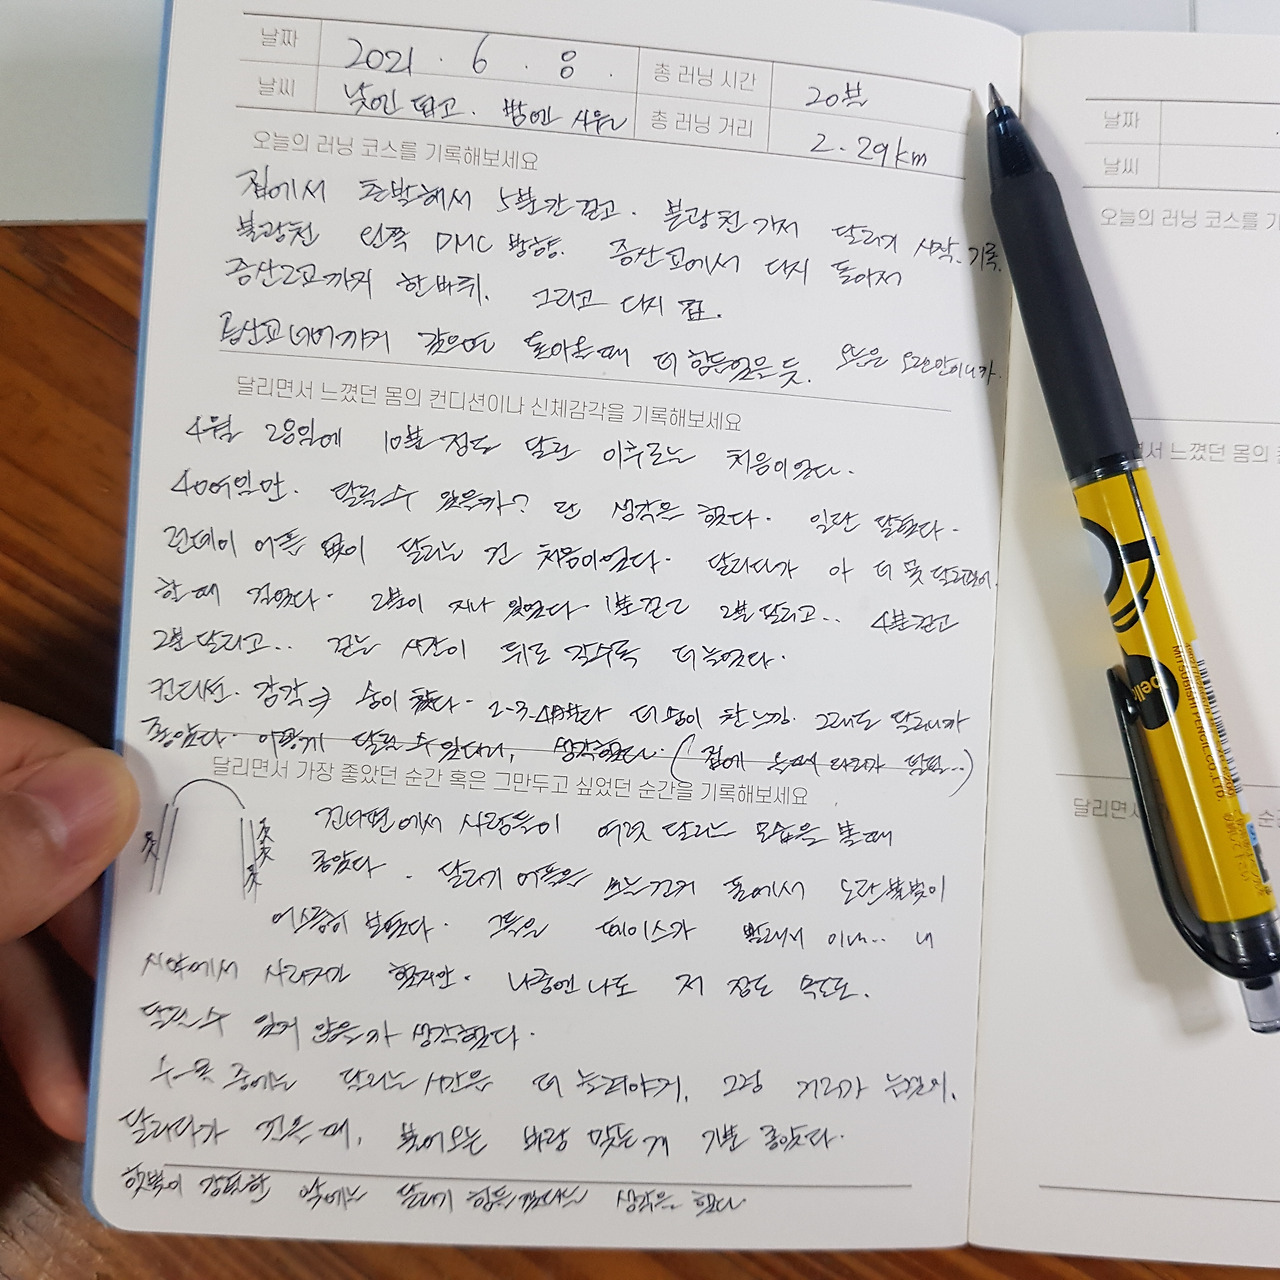 날짜 2021 . 6 . 8 . 총 러닝 시간 20분
날씨 낮엔 덥고. 밤엔 시원 총 러닝 거리 2.29km
오늘의 러닝 코스를 기록해보세요
집에서 출발해서 5분간 걷고. 불광천 가서 달리기 시작. 기록.
불광천 왼쪽 DMC 방향. 증산교에서 다시 돌아서
증산2교까지 한바퀴. 그리고 다시 집.
증산교 너머까지 갔으면 돌아올때 더 힘들었을듯.
달리면서 느꼈던 몸의 컨디션이나 신체감각을 기록해보세요
4월 28일에 10분 정도 달린 이후로는 처음이었다.
40여일만. 달릴 수 있을까? 란 생각은 했다. 일단 달렸다.
런데이 어플 없이 달리는 건 처음이었다. 달리다가 아 더 못 달리겠어.
할 때 걸었다. 2분이 지나 있었다. 1분 걷고 2분 달리고.. 4분 걷고
2분 달리고.. 걷는 시간이 뒤로 갈수록 더 늘었다.
컨디션. 감각 숨이 찼다. 2-3-4 더 숨이 찬 느낌. 그래도 달리니까
좋았다. 이렇게 달릴 수 있다니, 생각했다. (집에 올때 다리가
달리면서 가장 좋았던 순간 혹은 그만두고 싶었던 순간을 기록해보세요
건너편에서 사람들이 여럿 달리는 모습을 볼때
좋았다. 달리기 어플을 쓰는건지 등에서 불빛이
보였다. 그들은 페이스가 빨라서 이내... 내
시야에서 사라지긴 했지만. 나중엔 나도 저 정도 속도로.
달릴 수 있지 않을까 생각했다.
중에는 달리는 시간을 더 늘려야지. 그럼 거리가 늘겠지.
달리다가 걸을 때, 불어오는 바람 맞는게 기분 좋았다.
햇볕이 강렬한 낮에는 달리기 힘들겠다는 생각은 했다
날짜
날씨
오늘의 러닝 코스를 기
서 느꼈던 몸의
달리면서
MITSUBISHI PENCIL CO., LTD.